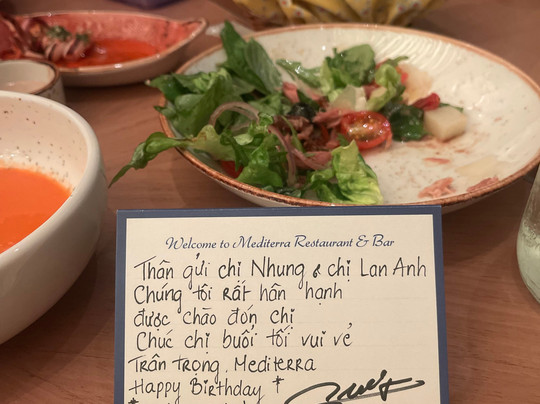 Welcome to Mediterra Restaurant & Bar
Thân gửi chị Nhung & chị Lan Anh
Chúng tôi rất hân hạnh
được chào đón chị
Chúc chị buổi tối vui vẻ
Trân trọng, Mediterra
Happy Birthday